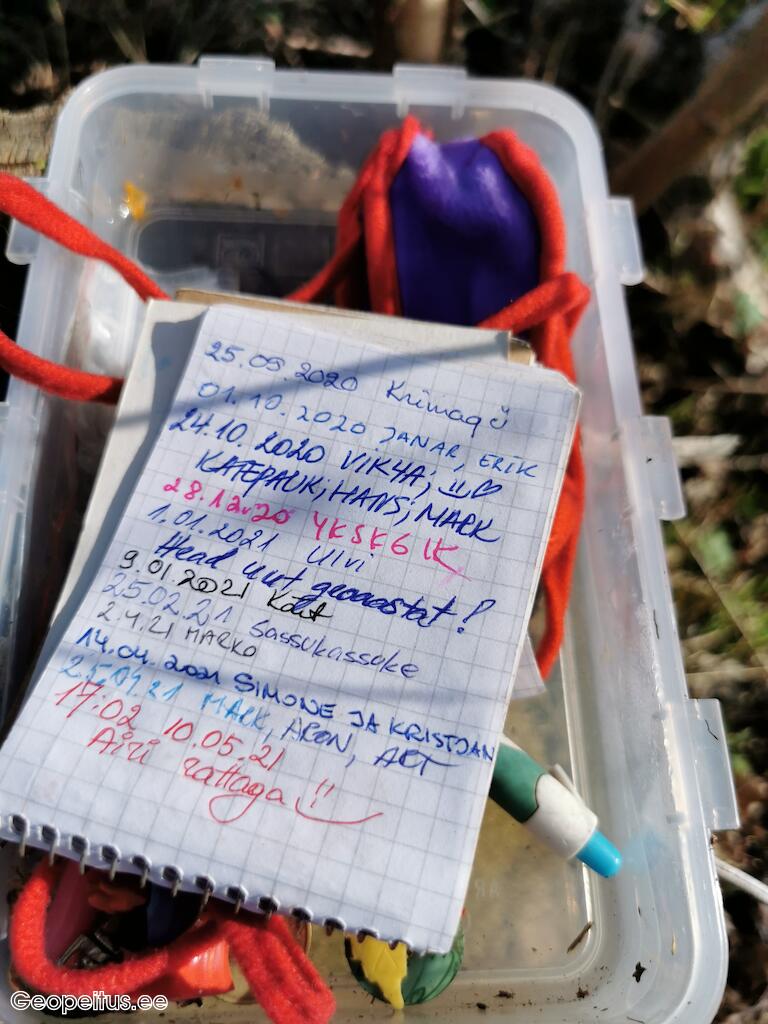 25.09.2020 Kriimagü
01.10.2020 JANAR, ERIK
24.10.2020 VIKYA;
KATEPAUK; HANS; MARK
28.12.20 YKSK6IK
1.01.2021 Ulvi
Head uut geoaastat!
9.01.2021 Kott
25.02.21 Sassukassuke
2.4.21 MARKO
14.04.2021 SIMONE JA KRISTJAN
25.04.21 MARK, ARON, ART
17:02 10.05.21
Airi rattaga !!
Geopeitus.ee